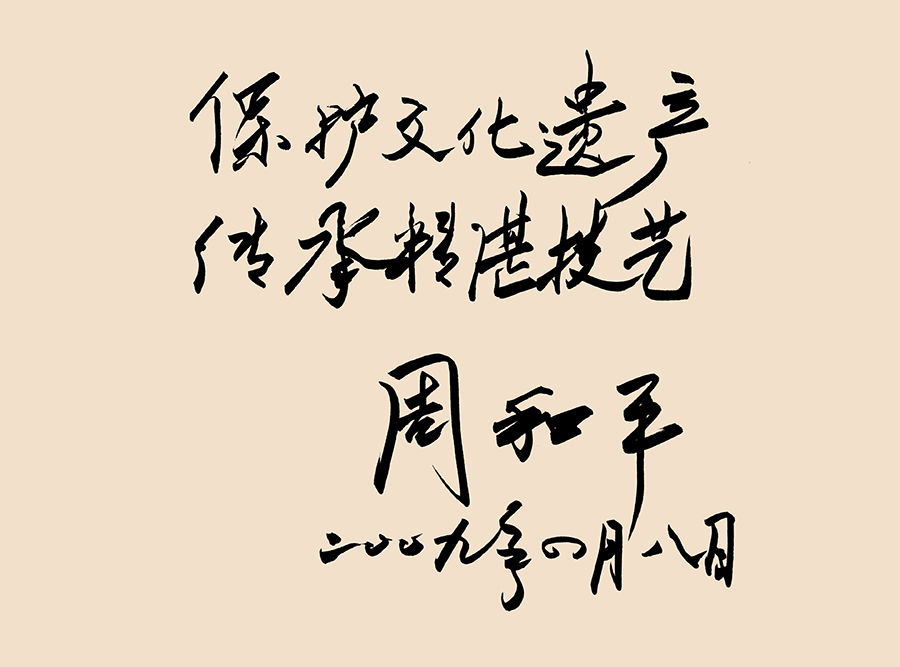 保护文化遗产
传承精湛技艺
周和平
二〇〇九年四月八日